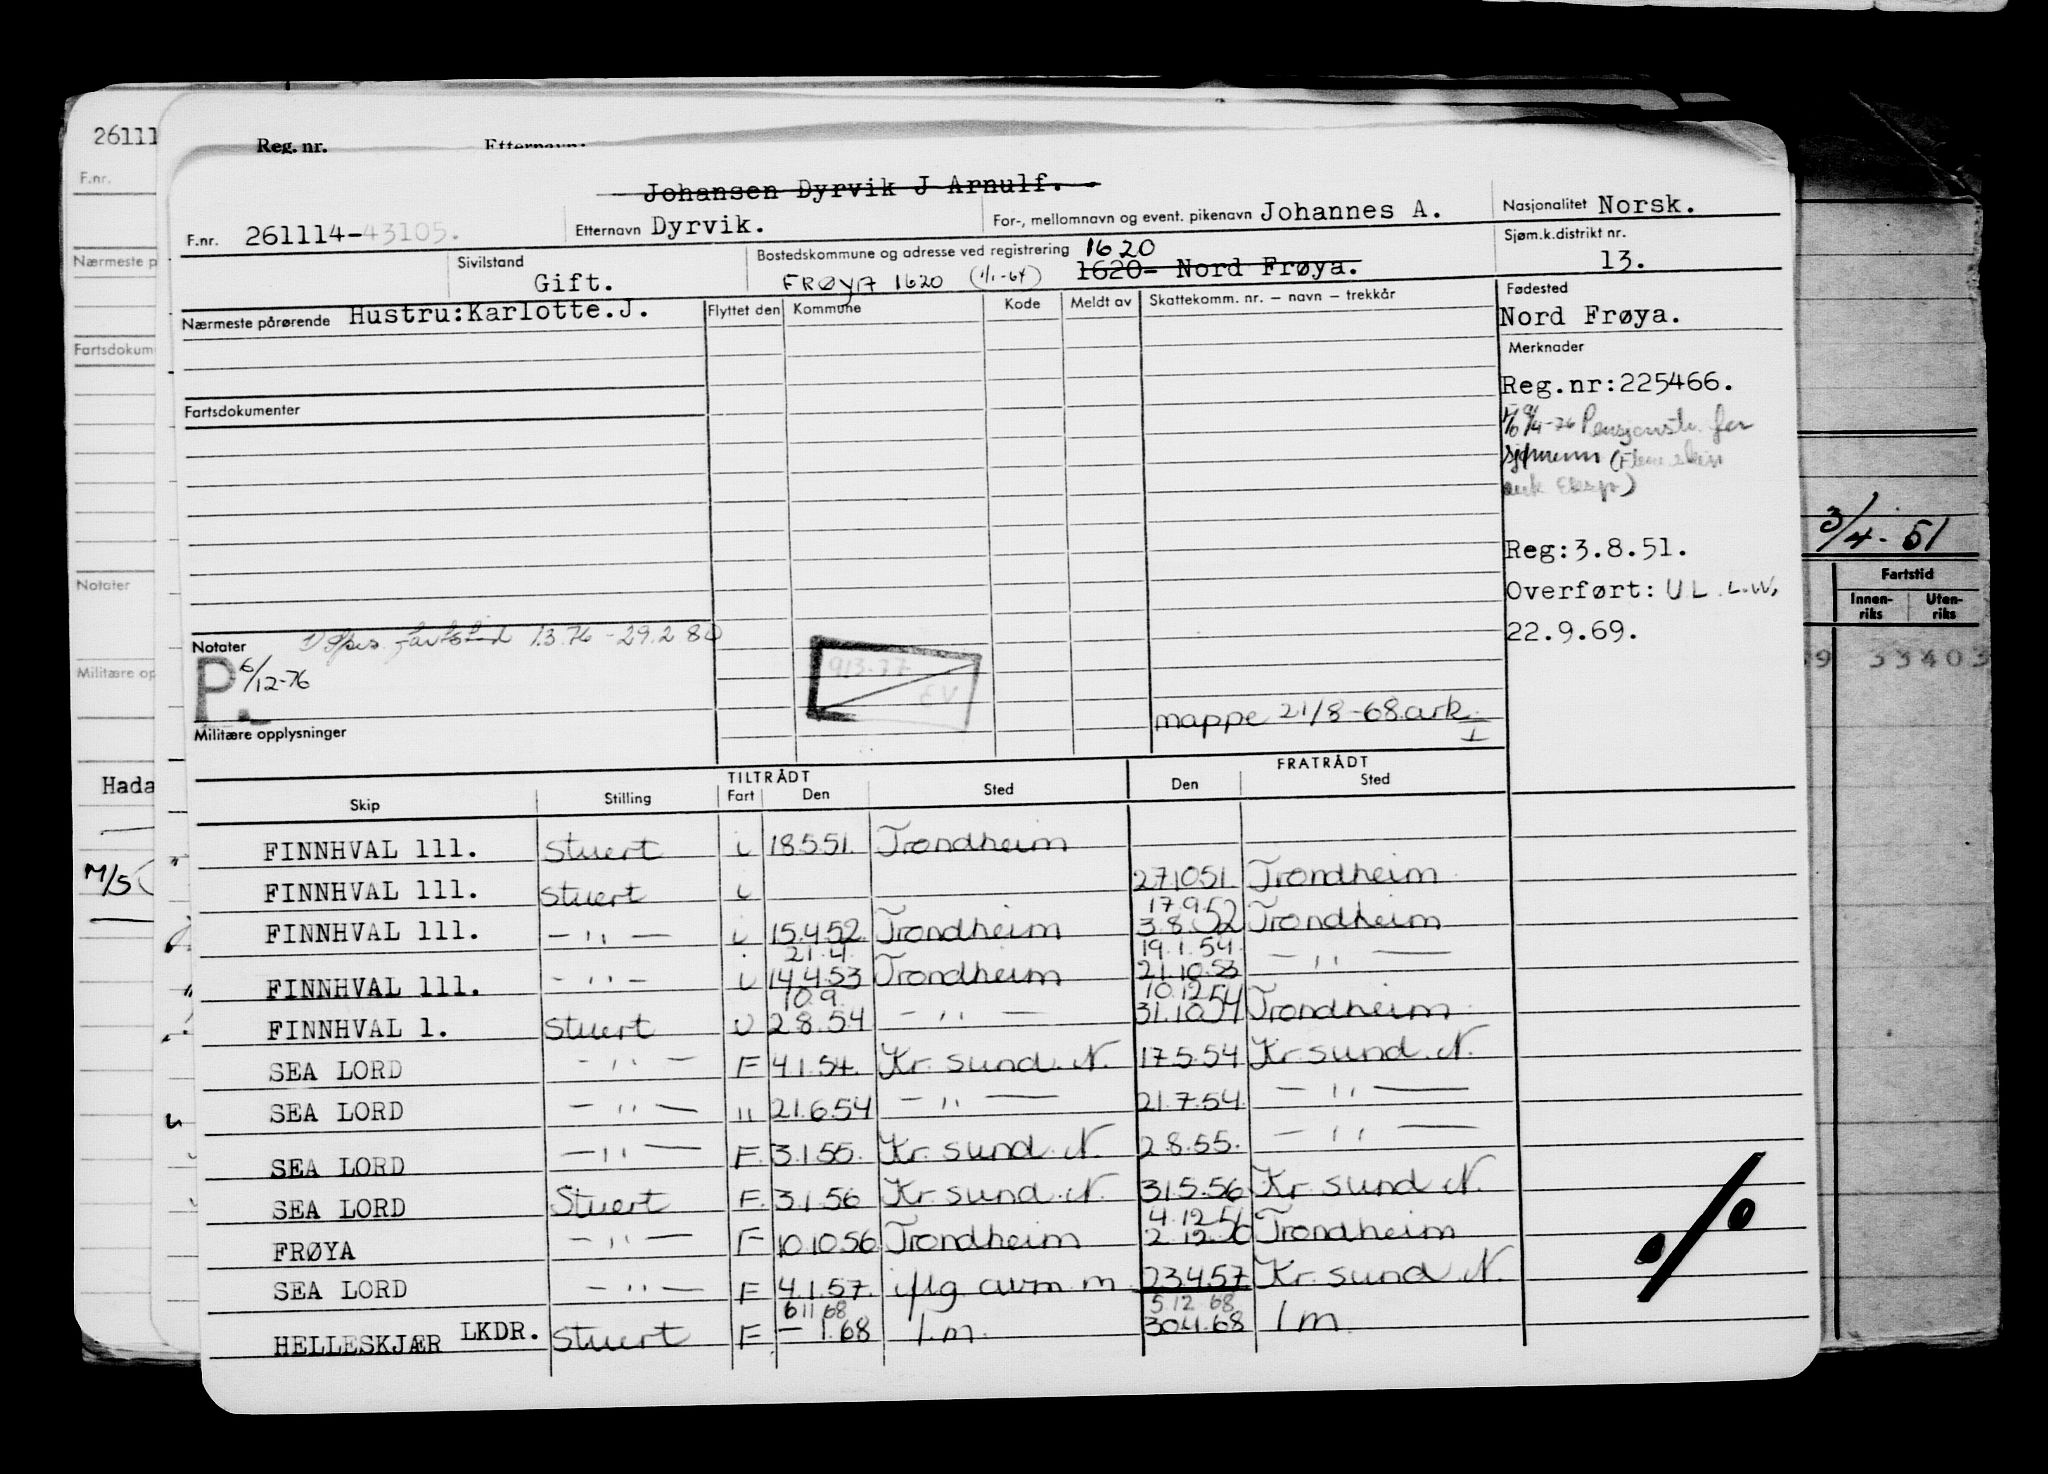 26111
Reg. nr.
Etternavn:
F.nr.
Johansen Dyrvik J Arnulf.
F.nr. 261114-43105.
Etternavn Dyrvik.
For-, mellomnavn og event. pikenavn Johannes A.
Nasjonalitet Norsk.
Sivilstand
Gift.
Bostedskommune og adresse ved registrering 1620
FRØYA 1620 (1/1-64) 1620- Nord Frøya.
Sjøm.k.distrikt nr.
13.
Nærmeste p
Nærmeste pårørende Hustru:Karlotte.J.
Flyttet den Kommune Kode Meldt av Skattekomm. nr. – navn – trekkår
Fødested
Nord Frøya.
Merknader
Fartsdokum
Reg.nr:225466.
Fartsdokumenter
Pensjonstr. for
sjømenn (Flere skin
ark Ekspr)
3/4-51
Reg:3.8.51.
Fartstid
Innen-riks Uten-riks
Overført: U L L.W.
22.9.69.
9 33403
Notater
Notater 1) Spes. fartstid 1.3.76 - 29.2.80
P. 6/12-76
913-77
EV
Militære op
Militære opplysninger
mappe 21/8-68.ark.
I
Hada
M/S
TILTRÅDT FRATRÅDT
Skip Stilling Fart Den Sted Den Sted
FINNHVAL 111. Stuert i 18.5.51. Trondheim
FINNHVAL 111. Stuert i 27.10.51. Trondheim
17.9.52
FINNHVAL 111. — " — i 15.4.52. Trondheim 3.8.52 Trondheim
21.4. 19.1.54.
FINNHVAL 111. — " — i 14.4.53 Trondheim 21.10.53 — " —
10.9. 10.12.54
FINNHVAL 1. Stuert U 2.8.54 — " — 31.10.54 Trondheim
SEA LORD — " — F 4.1.54. Kr.sund.N. 17.5.54 Kr.sund.N.
SEA LORD — " — " 21.6.54 — " — 21.7.54. — " —
SEA LORD — " — F. 3.1.55. Kr.sund.N. 2.8.55. — " —
SEA LORD Stuert F. 3.1.56 Kr.sund.N. 31.5.56 Kr.sund.N.
4.12.51
FRØYA — " — F 10.10.56 Trondheim 2.12.50 Trondheim
SEA LORD — " — F 4.1.57. iflg avm.m. 23.4.57 Kr.sund.N.
6 11 68 5.12 68
HELLESKJÆR LKDR. Stuert F — 1.68 I.m. 30.4.68 I m.
./.